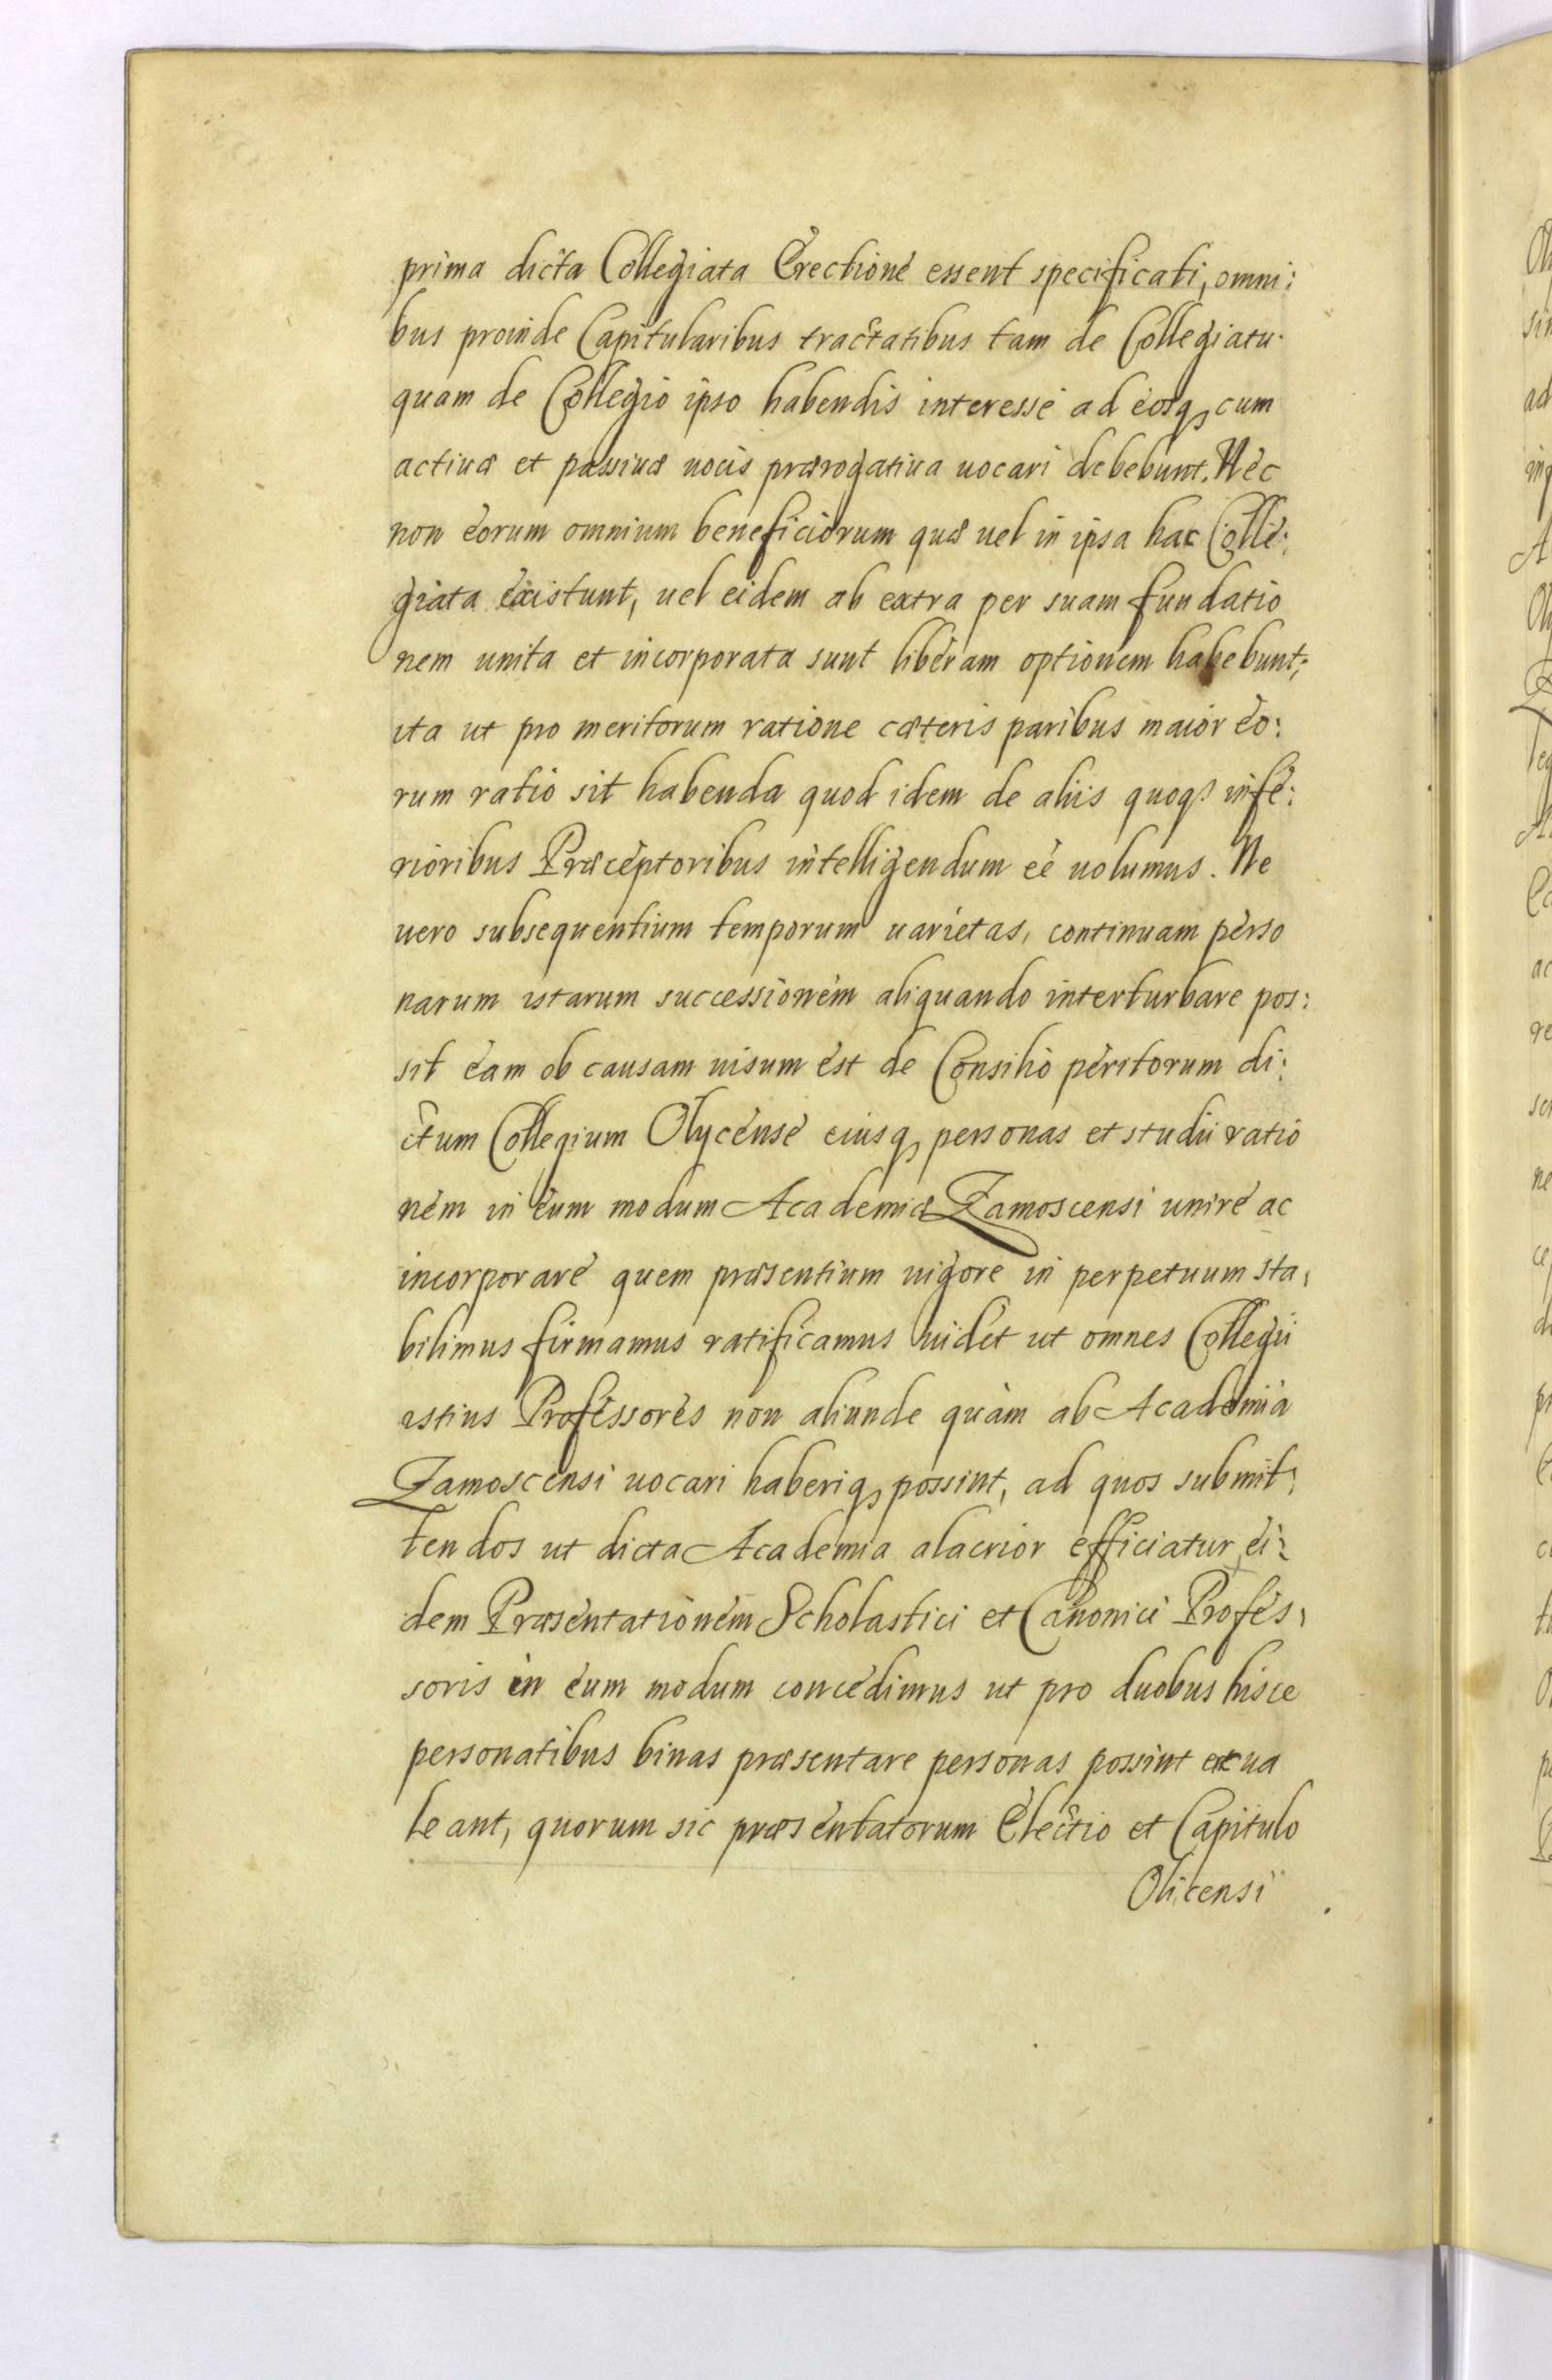 prima dicta Collegiata Erectione essent specificati, omni:
bus proinde Capitularibus tractatibus tam de Collegiatu.
quam de Collegio ipso habendis interesse ad eosq, cum
actiuæ et passiuæ uocis prærogatiua uocari debebunt. Nec
non eorum omnium beneficiorum quæ uel in ipsa hac Colle:
giata existunt, uel eidem ab extra per suam fundatio
nem unita et incorporata sunt liberam optionem habebunt;
ita ut pro meritorum ratione cæteris paribus maior eo:
rum ratio sit habenda quod idem de aliis quoq, infe:
rioribus Præceptoribus intelligendum eē uolumus. Ne
uero subsequentium temporum uarietas, continuam perso
narum istarum successionem aliquando interturbare pos:
sit eam ob causam uisum est de Consilio peritorum di:
ctum Collegium Olycense eiusq, personas et studii ratio
nem in eum modum Academiæ Zamoscensi unire ac
incorporare quem præsentium uigore in perpetuum sta,
bilimus firmamus ratificamus uidet ut omnes Collegii
istius Professores non aliunde quàm ab Academia
Zamoscensi uocari haberiq, possint, ad quos submit:
tendos ut dicta Academia alacrior efficiatur, ei:
dem Præsentationem Scholastici et Canonici Profes,
soris in eum modum concedimus ut pro duobus hisce
personatibus binas præsentare personas possint et ua
leant, quorum sic præsentatorum Electio et Capitulo
Olicensi